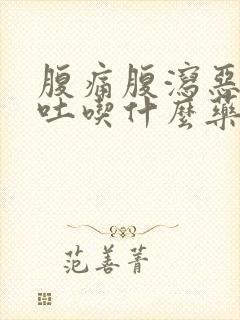 腹痛腹瀉惡
吐喫什麼藥
范善菁